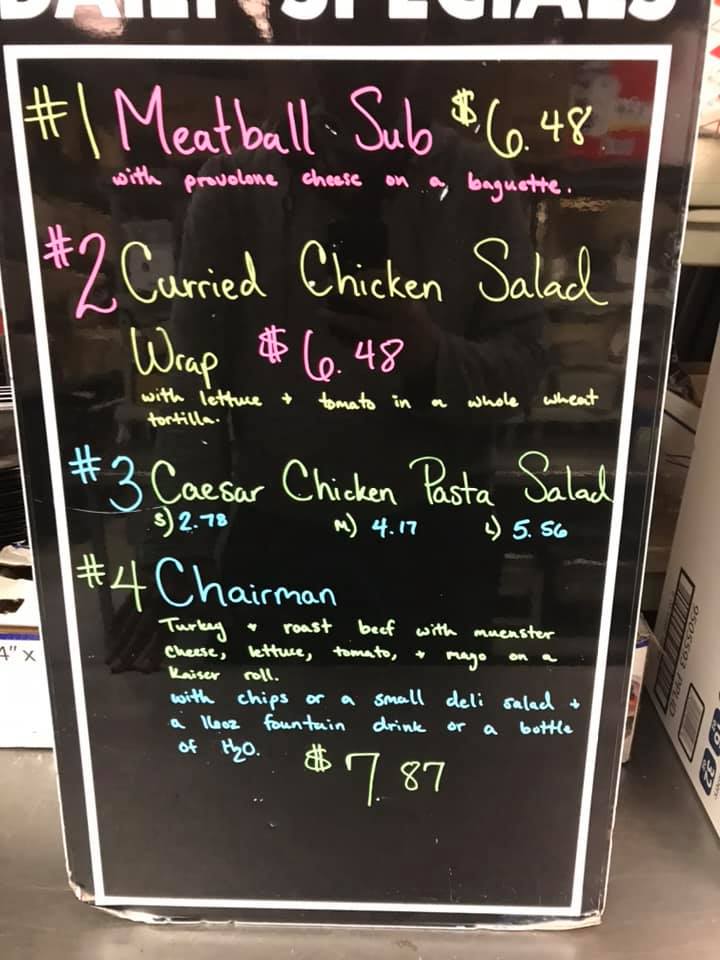 DAILY SPECIALS
#1 Meatball Sub $6.48
with provolone cheese on a baguette.
#2 Curried Chicken Salad
Wrap $6.48
with lettuce + tomato in a whole wheat
tortilla.
#3 Caesar Chicken Pasta Salad
S) 2.78 M) 4.17 L) 5.56
#4 Chairman
Turkey + roast beef with muenster
cheese, lettuce, tomato, + mayo on a
Kaiser roll.
with chips or a small deli salad +
a 16oz fountain drink or a bottle
of H2O. $7.87
4" x